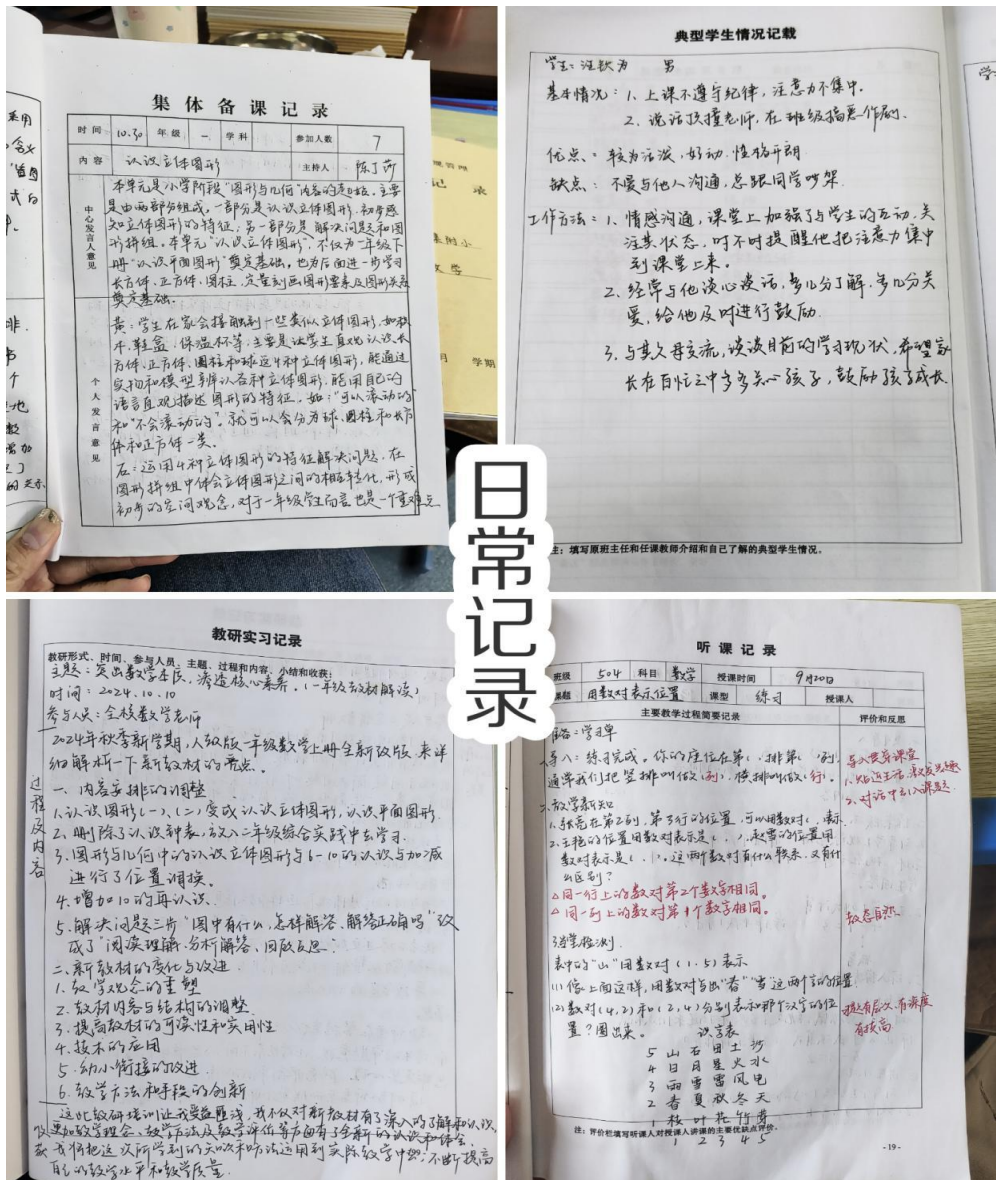 集体备课记录
时间 10.30 年级 一 学科 参加人数 7
内容 认识立体图形 主持人 陈丁莎
中心发言人意见
本单元是小学阶段“图形与几何”内容的起始, 主要
是由两部分组成,一部分是认识立体图形,初步感
知立体图形的特征,另一部分是解决问题和图
形拼组。本单元“认识立体图形”,不仅为一年级下
册“认识平面图形”奠定基础,也为后面进一步学习
长方体、正方体、圆柱、定量刻画图形要素及图形关系
奠定基础。
个人发言意见
黄:学生在家会接触到一些类似立体图形,如积
木、鞋盒、保温杯等,主要是让学生直观认识长
方体、正方体、圆柱和球这4种立体图形,能通过
实物和模型辨认各种立体图形,能用自己的
语言直观描述图形的特征,如:“可以滚动的”
和“不会滚动的”。就可以会分为球、圆柱和长方
体和正方体一类。
石:运用4种立体图形的特征解决问题,在
图形拼组中体会立体图形之间的相互转化,形成
初步的空间观念,对于一年级学生而言也是一个重难点
记 录
集附小
数学
月 学期
典型学生情况记载
学生:汪钦为 男
基本情况:1、上课不遵守纪律,注意力不集中。
2、说话顶撞老师,在班级搞恶作剧。
优点:较为活泼,好动,性格开朗
缺点:不爱与他人沟通,总跟同学吵架.
工作方法:1、情感沟通,课堂上加强了与学生的互动,关
注其状态,时不时提醒他把注意力集中
到课堂上来。
2、经常与他谈心谈话,多几分了解,多几分关
爱,给他及时进行鼓励.
3、与其父母交流,谈谈目前的学习现状,希望家
长在百忙之中多多关心孩子,鼓励孩子成长.
注:填写原班主任和任课教师介绍和自己了解的典型学生情况。
日常记录
教研实习记录
教研形式、时间、参与人员、主题、过程和内容、小结和收获:
主题:突出数学本质,渗透核心素养。(一年级教材解读)
时间:2024.10.10
参与人员:全校数学老师
过程及内容
2024年秋季新学期,人教版一年级数学上册全新改版,来详
细解析一下新教材的亮点。
一、内容安排的调整
1.认识图形(一)、(二)变成认识立体图形,认识平面图形.
2.删除了认识钟表,放入二年级综合实践中去学习.
3.图形与几何中的认识立体图形与6-10的认识与加减
进行了位置调换。
4.增加10的再认识.
5.解决问题三步“图中有什么,怎样解答、解答正确吗”改
成了“阅读理解、分析解答、回顾反思”.
二、新教材的变化与改进
1.教学观念的重塑
2.教材内容与结构的调整
3.提高教材的可读性和实用性
4.技术的应用
5.幼小衔接的改进
6.教学方法和手段的创新
收获
这次教研培训让我受益匪浅,我不仅对新教材有了深入的了解和认识,
更加教学理念、教学方法及教学评价等方面有了全新的认识和体会.
我将把这次所学到的知识和方法运用到实际教学中去,不断提高
自己的教学水平和教学质量.
听课记录
班级 504 科目 数学 授课时间 9月20日
课题 用数对表示位置 课型 练习 授课人
主要教学过程简要记录 评价和反思
准备:学习单
一、导入:练习完成,你的座位在第( )排第( )列,
通常我们把竖排叫做(列),横排叫做(行)。
导入贯穿课堂
1.贴近生活,激发兴趣
2.对话中引入课题
二、教学新知
1.张亮在第2列,第3行的位置,可以用数对( , )表示.
2.王艳的位置用数对表示是( , ),赵雪的位置用
数对表示是( , )。这两个数对有什么联系,又有什
么区别?
△同一行上的数对第2个数字相同。
△同一列上的数对第1个数字相同。
教态自然
3.当堂检测.
表中的“山”用数对(1,5)表示
(1)像上面这样,用数对写出“香”“雪”这两个字的位置
(2)数对(4,2)和(2,4)分别表示和那个汉字的位
置?圈出来。 识字表
提问有层次、有深度
有拔高
5 山 石 田 土 沙
4 日 月 星 火 水
3 雨 雪 雷 风 电
2 春 夏 秋 冬 天
1 枝 叶 花 竹 苗
注:评价栏填写听课人对授课人讲课的主要优缺点评价。
1 2 3 4 5
-19-